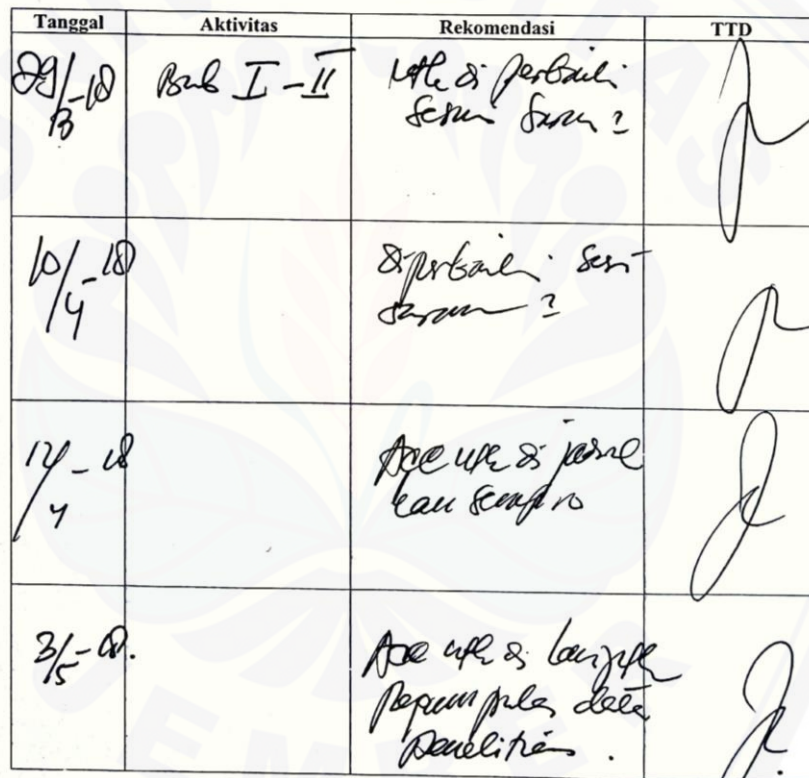 Tanggal Aktivitas Rekomendasi TTD
Bab I - II utk di perbaiki
sesuai saran 2
10/4-18 diperbaiki sesuai
saran 2
12/4-18 Acc utk di jadwal
kan sempro
3/5-18. Acc utk di lanjutk
pengumpulan data
penelitian.